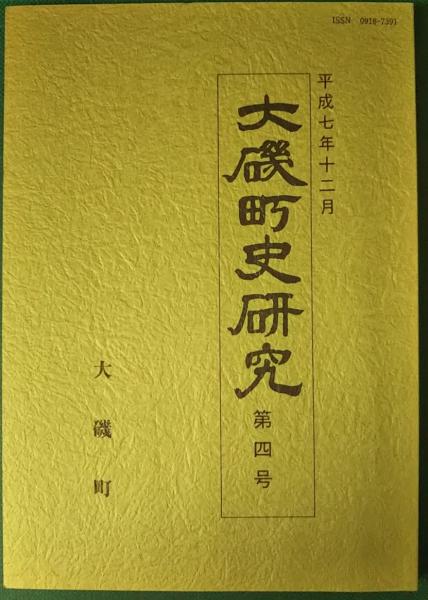 ISSN 0918-7391
平成七年十二月
大磯町史研究 第四号
大磯町